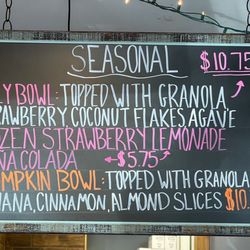 SEASONAL $10.75
BOWL: TOPPED WITH GRANOLA
COCONUT FLAKES, AGAVE
STRAWBERRY LEMONADE
COLADA ↔$5.75
BOWL: TOPPED WITH GRANOLA
CINNAMON, ALMOND SLICES $10.